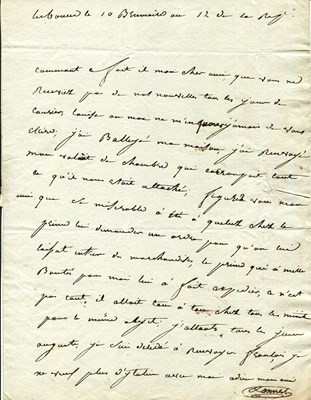 Lisbonne le 10 Brumaire an 12 de la Rep.
comment ce fait il mon cher ami que vous ne
Recevéz pas de nos nouvelle tous les jour de
courier, Louise au moi ne m'enquerri jamais de vous
ecrire, j'ai Ballayé ma maison, j'ai Renvoyé
mon valét de chambre qui corrompoit tout
ce qu'il nous etait attaché, figurés vous mon
ami que ce miserable à été à queluth chéz le
prince lui demander un ordre pour qu'on lui
laissat entrer de marchandise, le prince qui à mille
Bontés pour moi lui à fait expedier, ce n'est
pas tout, il alloit tous à tour chéz tous les ministre
pour le même objet, j'attends tous les jour
auguste, je suis décidé à Renvoyer françois je
ne veux plus d'italien avec moi adieu mon ami
Lannes